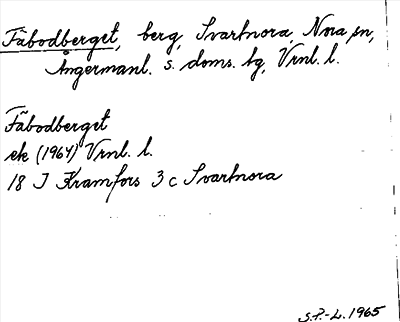 Fäbodberget, berg, Svartnora, Nora sn,
Ångermanl. s. doms. hg, Vrnl. l.
Fäbodberget
ek (1964) Vrnl. l.
18 J Kramfors 3 c Svartnora
S.P.-L. 1965